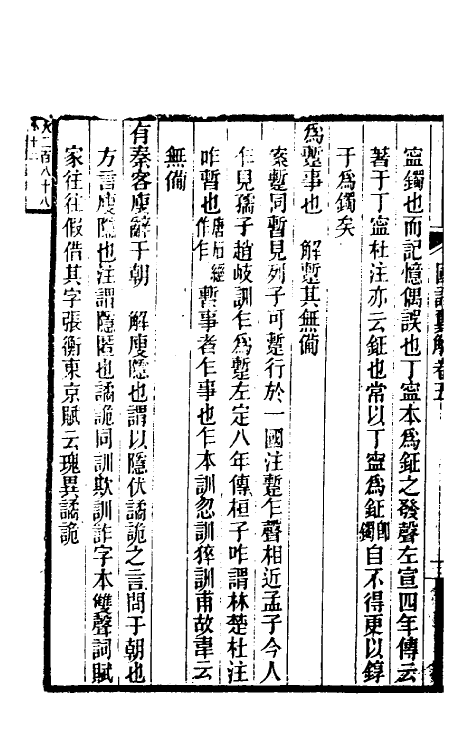 國語翼解卷五
甯鐲也而記憶偶誤也丁甯本爲鉦之發聲左宣四年傳云
著于丁甯杜注亦云鉦也常以丁甯爲鉦卽鐲自不得更以錞
于爲鐲矣
爲蹔事也　解蹔其無備
案蹔同暫見列子可蹔行於一國注蹔乍聲相近孟子今人
乍見孺子趙岐訓乍爲蹔左定八年傳桓子咋謂林楚杜注
咋暫也唐石經作乍暫事者乍事也乍本訓忽訓猝訓甫故韋云
無備
有秦客廋辭于朝　解廋隱也謂以隱伏譎詭之言問于朝也
方言廋隱也注謂隱匿也譎詭同訓欺訓詐字本雙聲詞賦
家往往假借其字張衡東京賦云瑰異譎詭
二百八十八